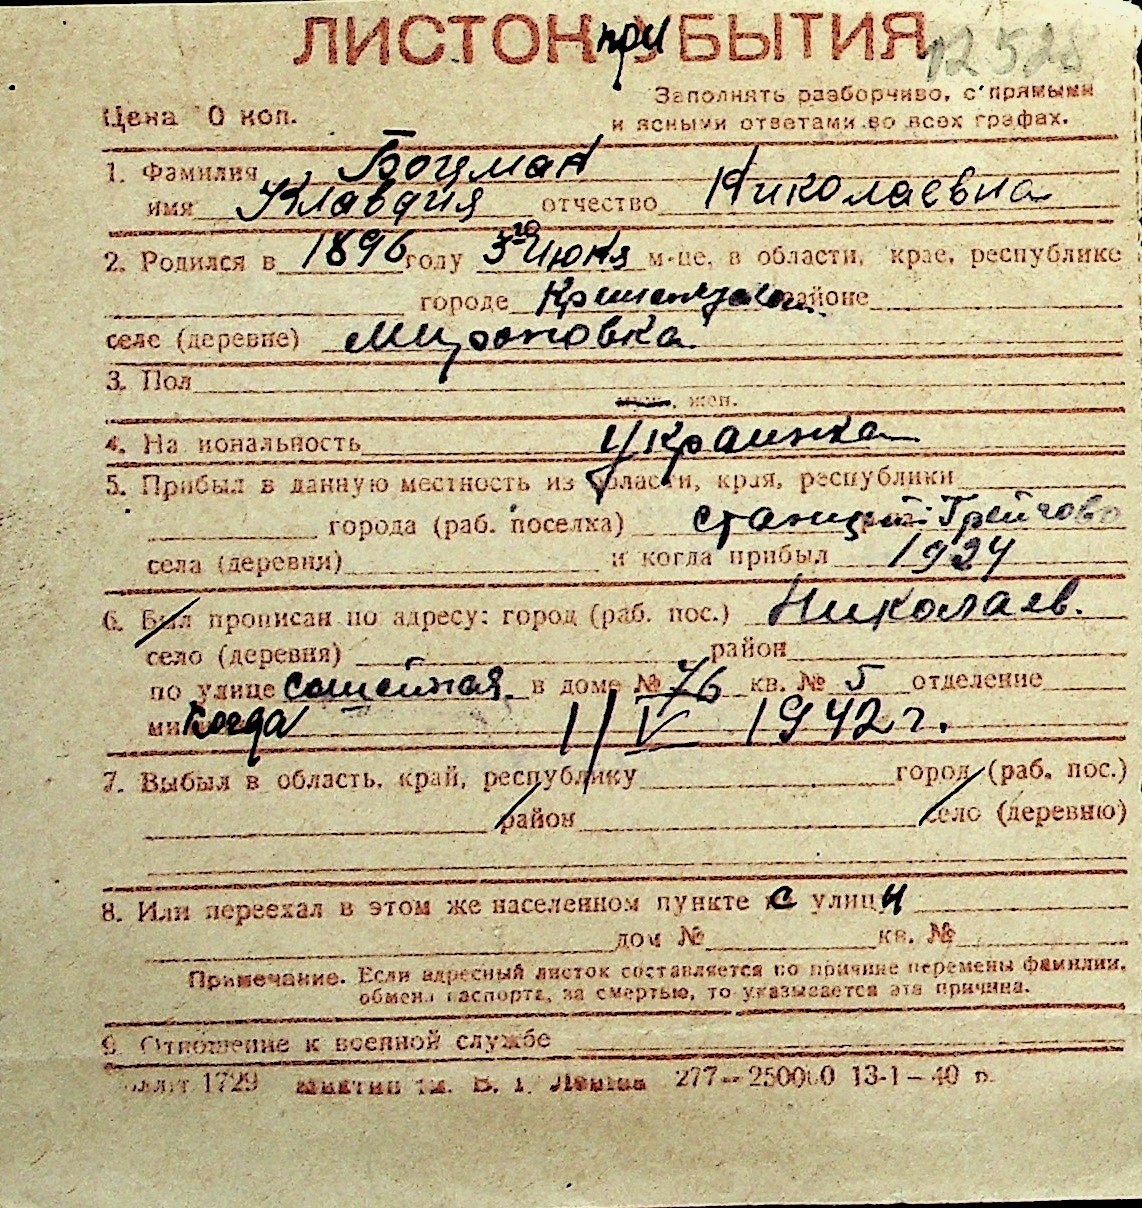 ЛИСТОК при УБЫТИЯ 12528
Заполнять разборчиво, с прямыми
Цена 10 коп. и ясными ответами во всех графах.
1. Фамилия Боцман
имя Клавдия отчество Николаевна
2. Родился в 1896 году 5го Июня м-це, в области, крае, республике
городе районе
селе (деревне) Мироновка
3. Пол
муж., жен.
4. Национальность Украинка
5. Прибыл в данную местность из области, края, республики
города (раб. поселка) станции Грейгово
села (деревни) и когда прибыл 1924
6. Был прописан по адресу: город (раб. пос.) Николаев.
село (деревня) район
по улице в доме № 76 кв. № 5 отделение
ми Когда 1/V 1942 г.
7. Выбыл в область, край, республику город (раб. пос.)
район село (деревню)
8. Или переехал в этом же населенном пункте с улицы
дом № кв. №
Примечание. Если адресный листок составляется по причине перемены фамилии,
обмена паспорта, за смертью, то указывается эта причина.
9. Отношение к военной службе
1729 им. В. И. Ленина 277—250000 13-1—40 г.